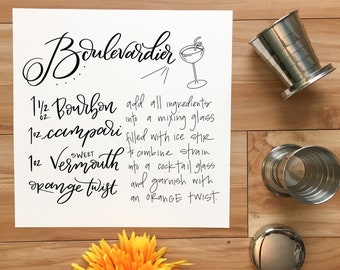 Boulevardier
1 1/2 oz. Bourbon
1 oz. campari
1 oz. SWEET Vermouth
orange twist
add all ingredients
into a mixing glass
filled with ice. stir
to combine. strain
into a cocktail glass
and garnish with
an ORANGE TWIST.